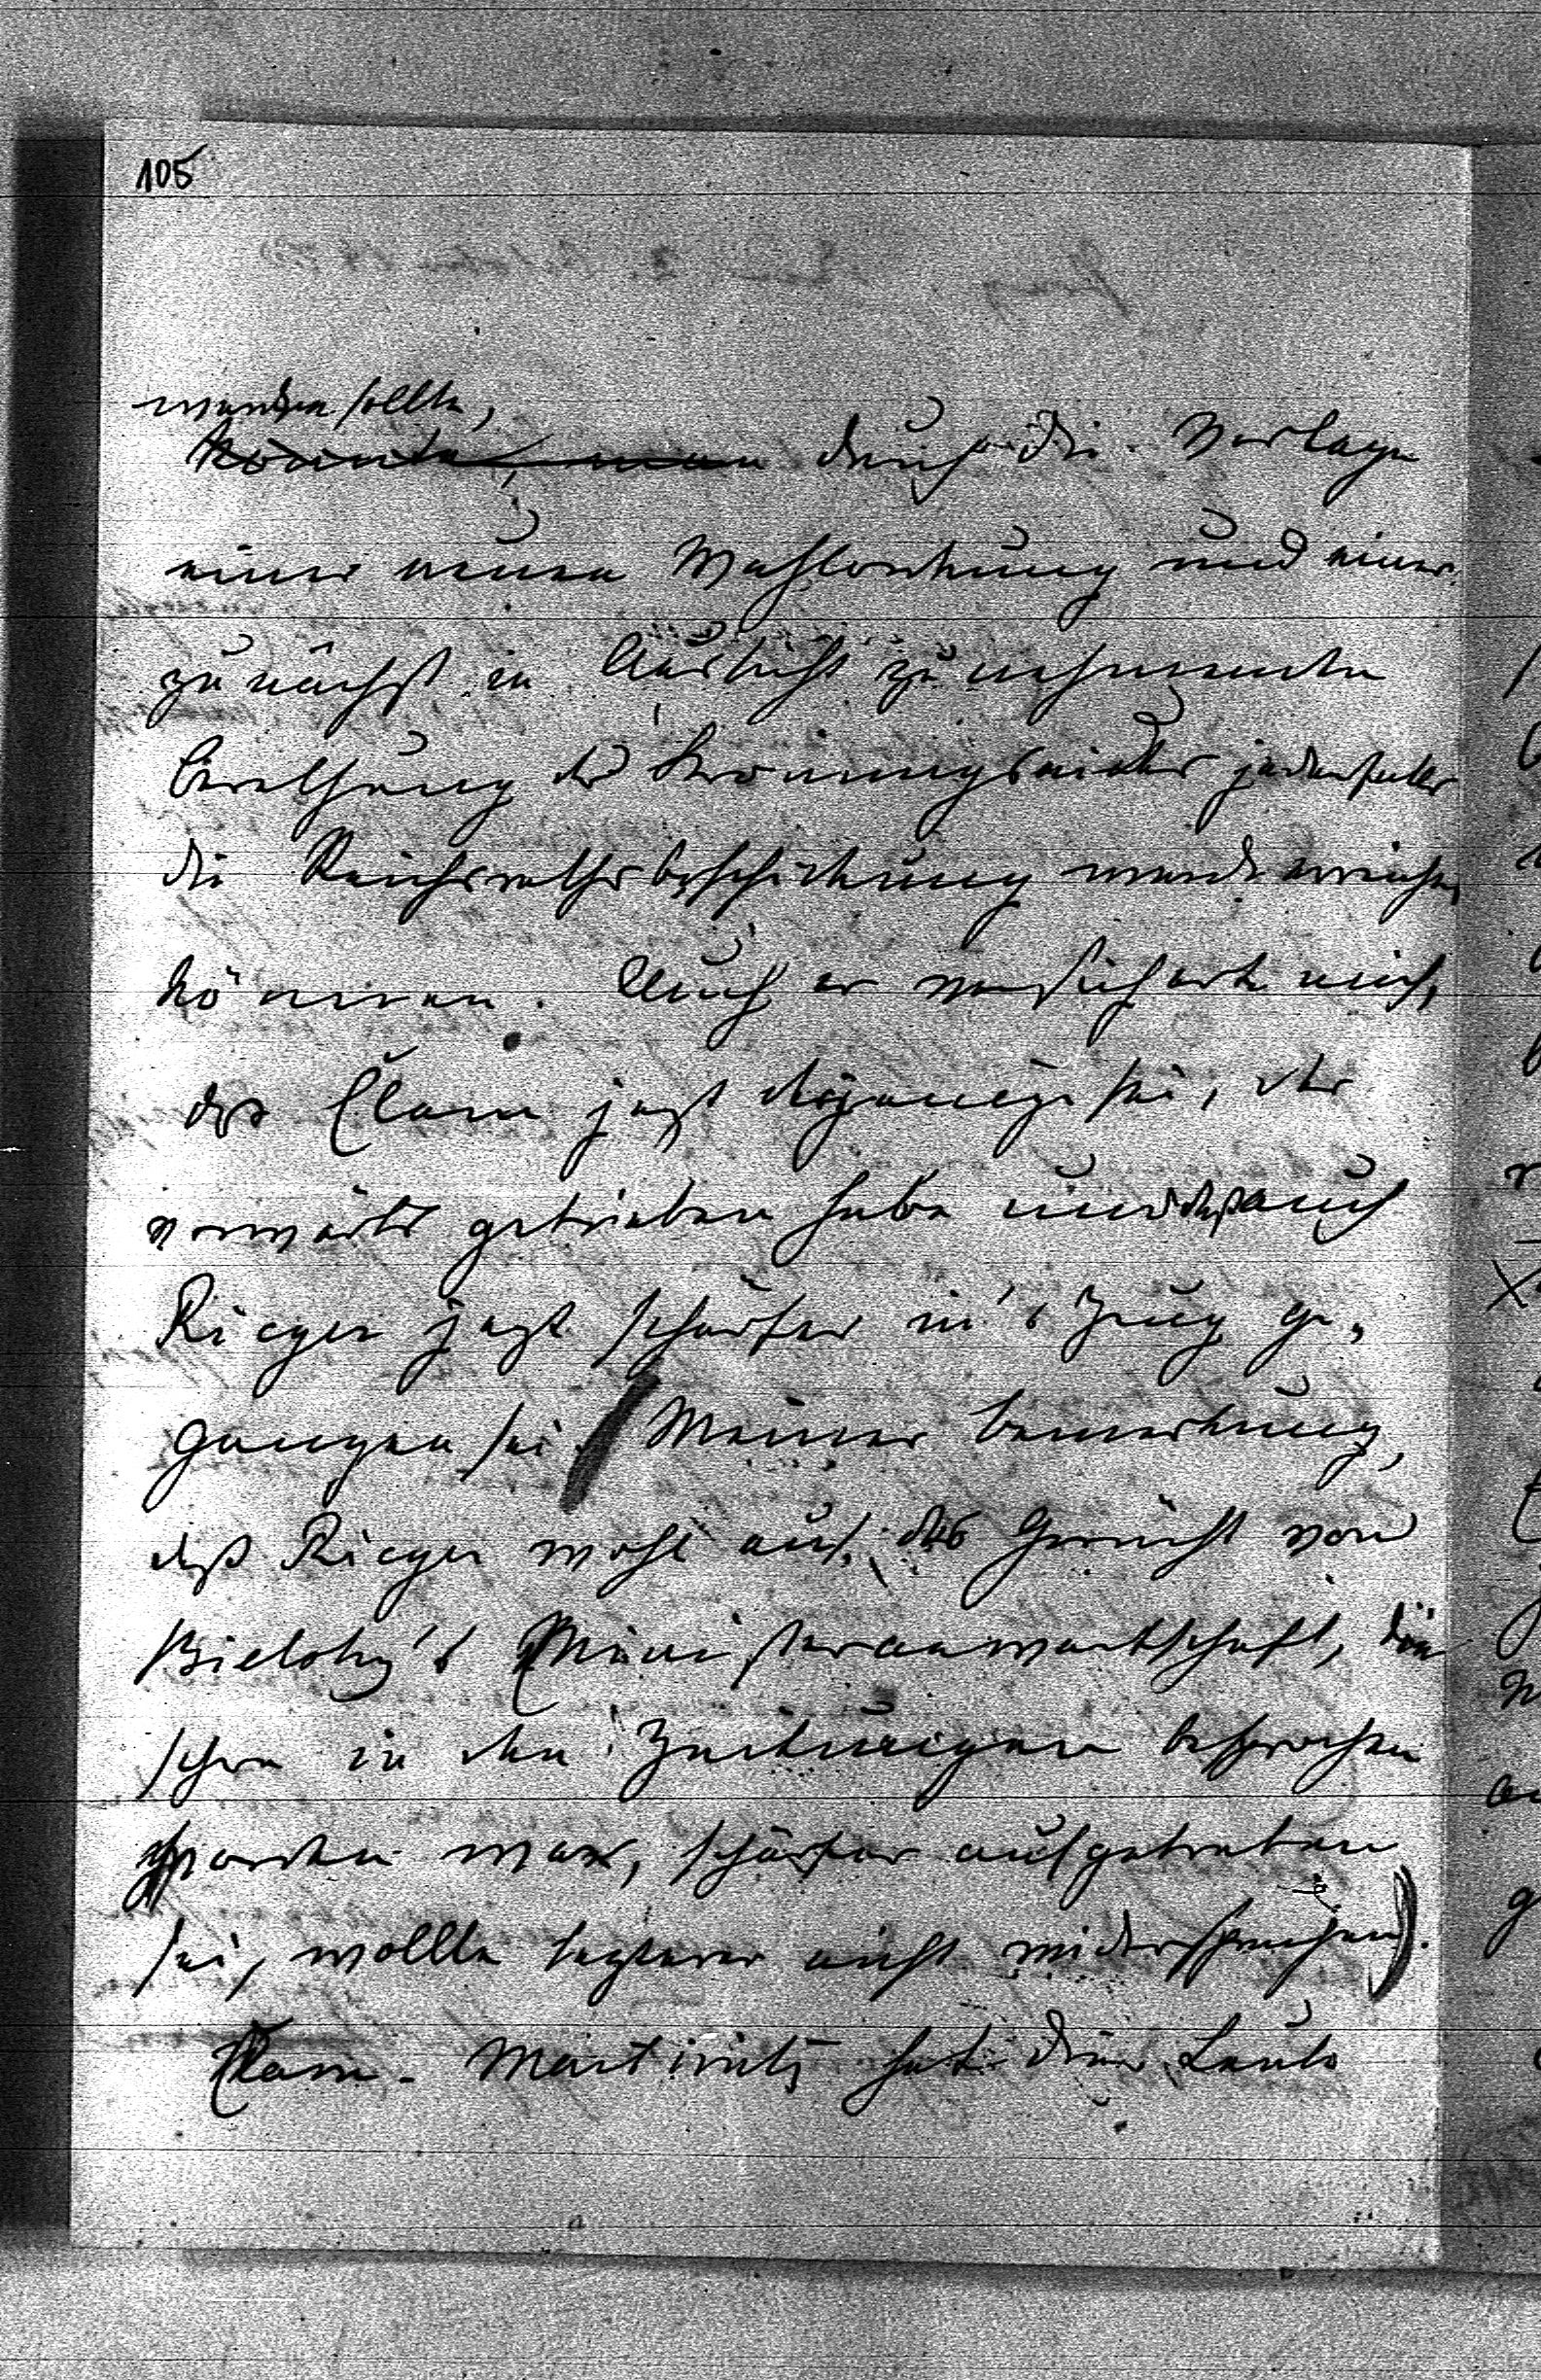 105
werden sollte,
könnte, man durch die Vorlage
einer neuen Wahlordnung und einer
zunächst in Aussicht zu nehmenden
Berathung des Krönungseides jedenfalls
die Reichsrathsbeschickung werde erreichen
können. Auch er versicherte mich,
daß Clam jetzt derjenige sei, der
vorwärts getrieben habe und daß auch
Rieger jetzt schärfer in's Zeug ge-
gangen sei. Meiner Bemerkung,
daß Rieger wohl auf das Gerücht von
Bielsky's Ministeranwartschaft, die
schon in den Zeitungen besprochen
worden war, schärfer aufgetreten
sei, wollte letzterer nicht widersprechen).
Clam-Martinitz hat diese Leute